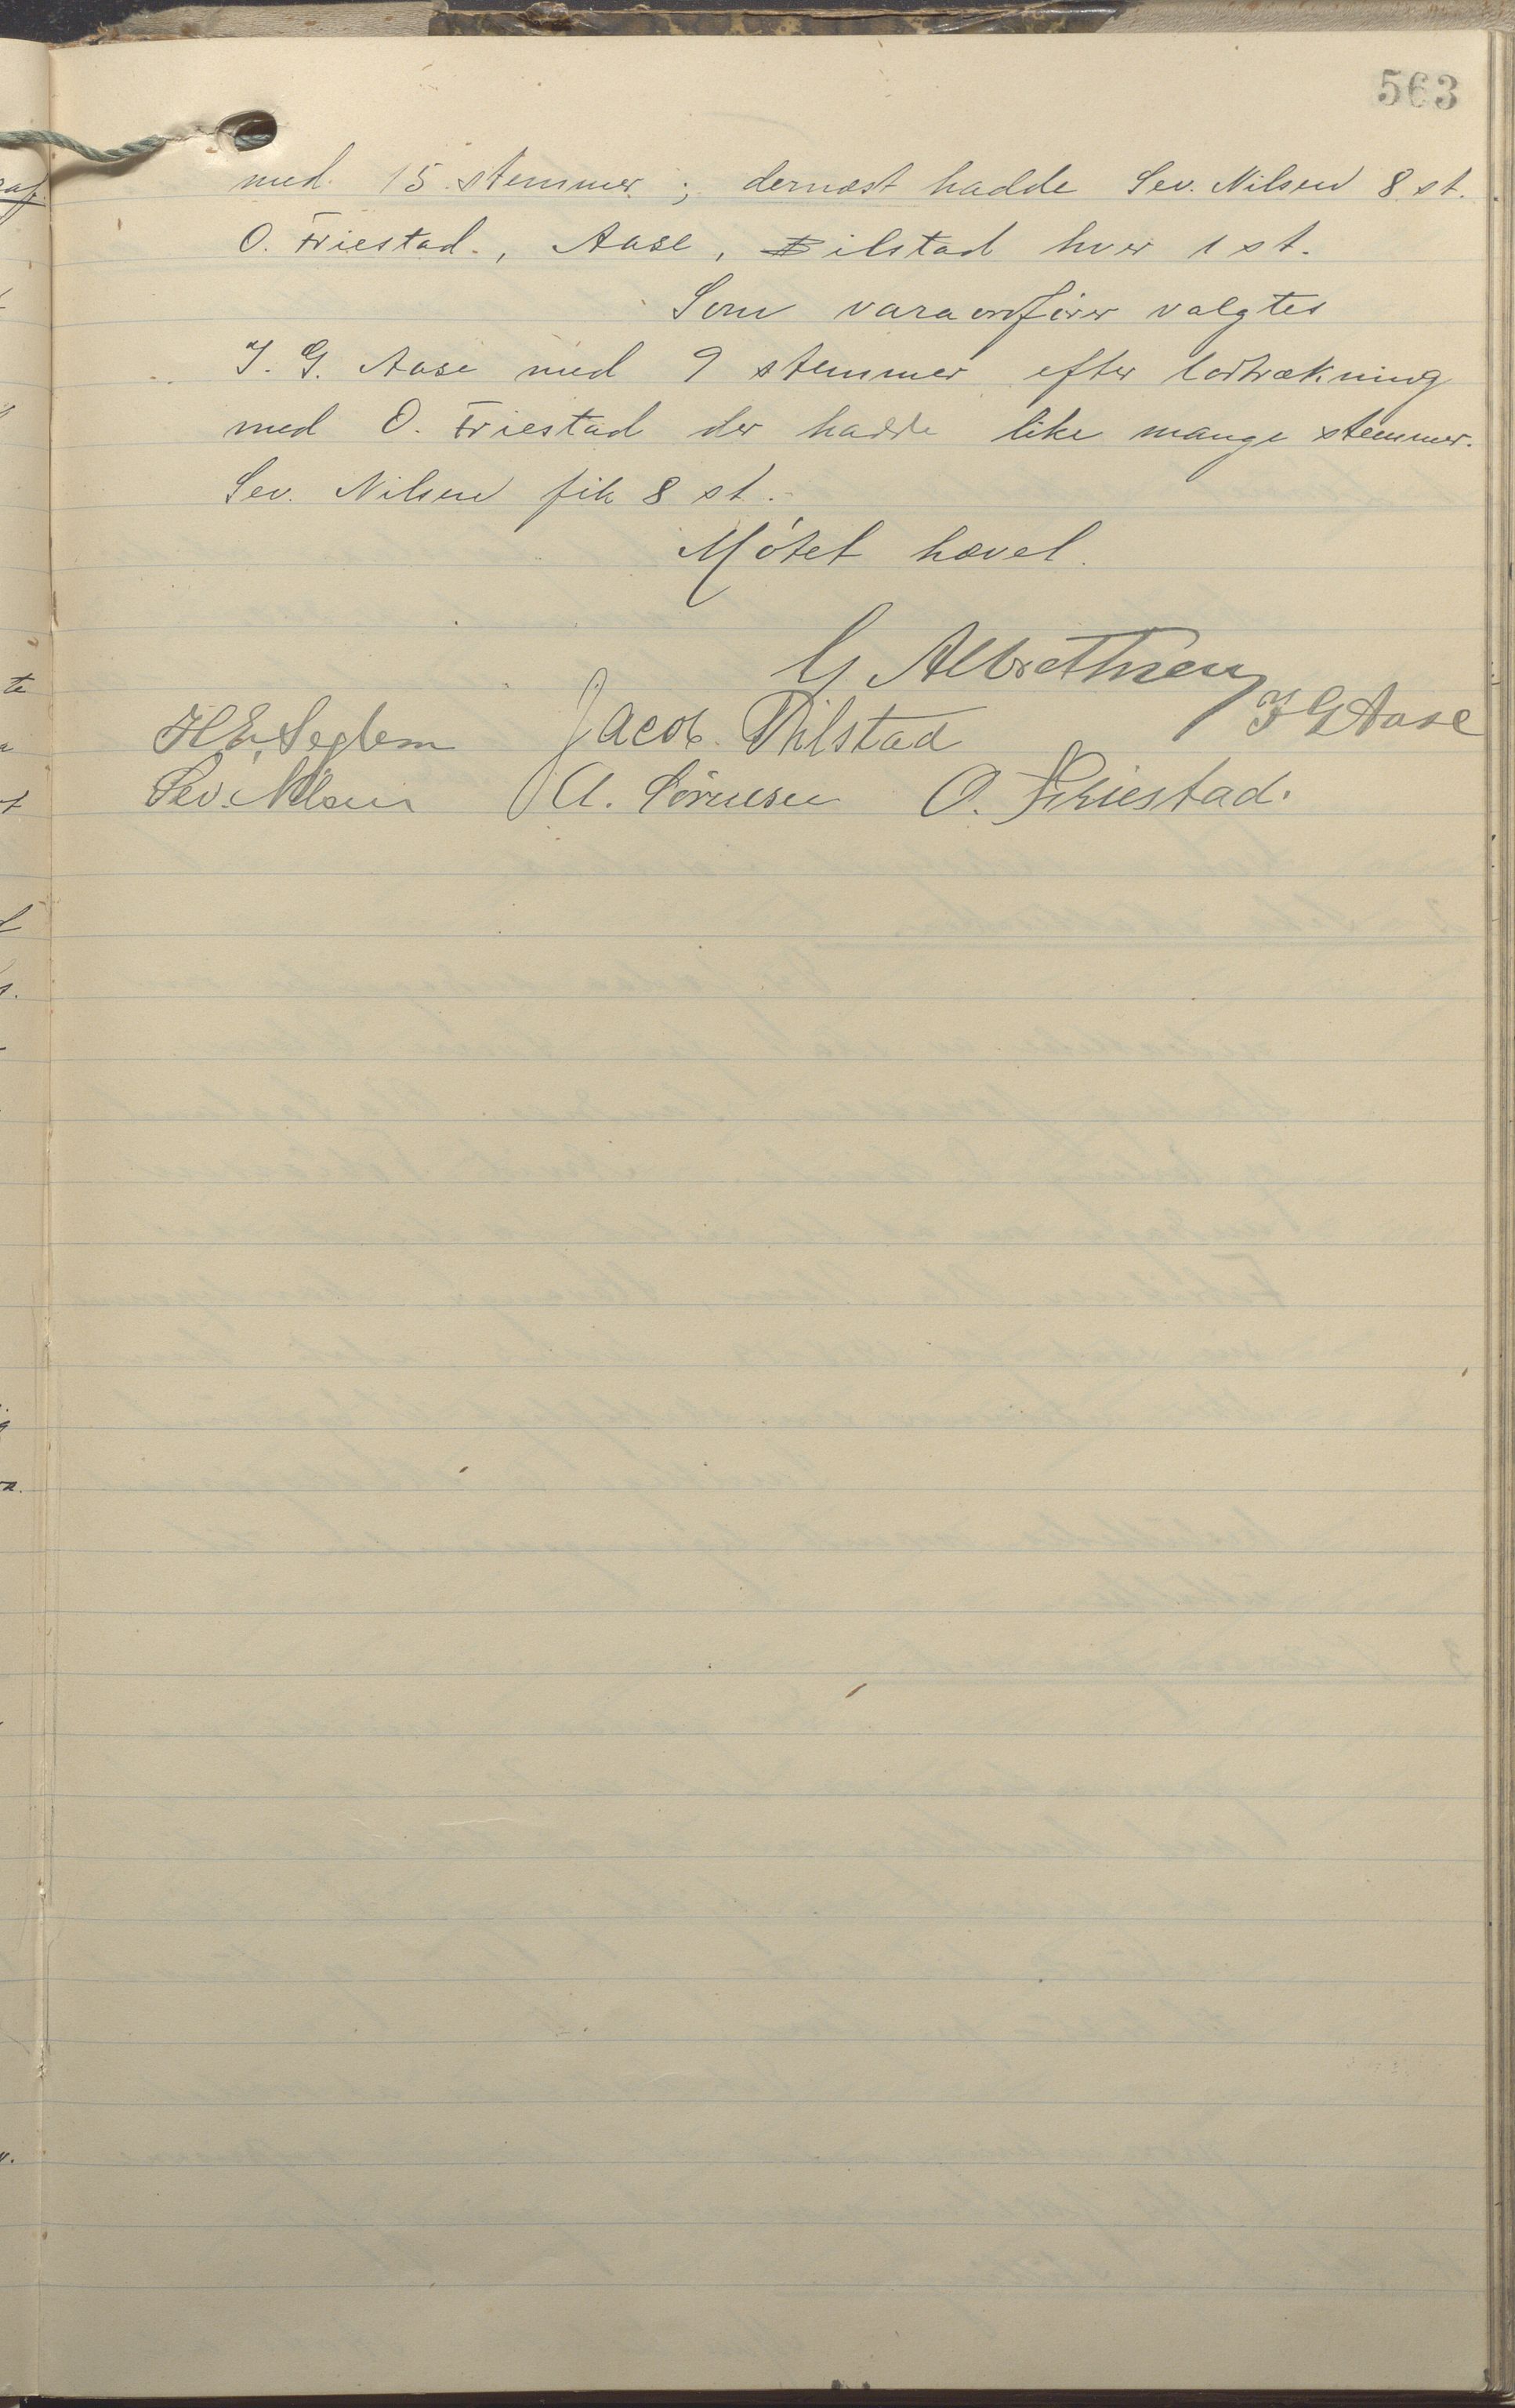 563
med 15 stemmer; dernæst hadde Sev. Nilsen 8 st.
O. Friestad., Aase, Bilstad hver 1 st.
Som varaordfører valgtes
J. G. Aase med 9 stemmer efter lodtrækning
med O. Friestad der hadde like mange stemmer.
Sev. Nilsen fik 8 st.
Møtet hævet.
G Albrethsen
H E Seglem Jacob Bilstad J G Aase
Sev. Nilsen A. Sørnesen O. Friestad.